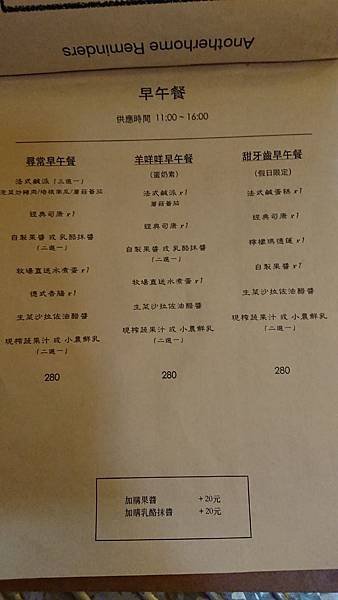 Anotherhome Reminders
早午餐
供應時間 11:00~16:00
尋常早午餐
法式鹹派 (三選一)
泡菜炒豬肉/培根南瓜/蘑菇番茄
經典司康 x1
自製果醬 或 乳酪抹醬
(二選一)
牧場直送水煮蛋 x1
德式香腸 x1
生菜沙拉佐油醋醬
現榨蔬果汁 或 小農鮮乳
(二選一)
280
羊咩咩早午餐
(蛋奶素)
法式鹹派 x1
蘑菇番茄
經典司康 x1
自製果醬 或 乳酪抹醬
(二選一)
牧場直送水煮蛋 x1
生菜沙拉佐油醋醬
現榨蔬果汁 或 小農鮮乳
(二選一)
280
甜牙齒早午餐
(假日限定)
法式鹹蛋糕 x1
經典司康 x1
檸檬瑪德蓮 x1
自製果醬 x1
生菜沙拉佐油醋醬
現榨蔬果汁 或 小農鮮乳
(二選一)
280
加購果醬 +20元
加購乳酪抹醬 +20元